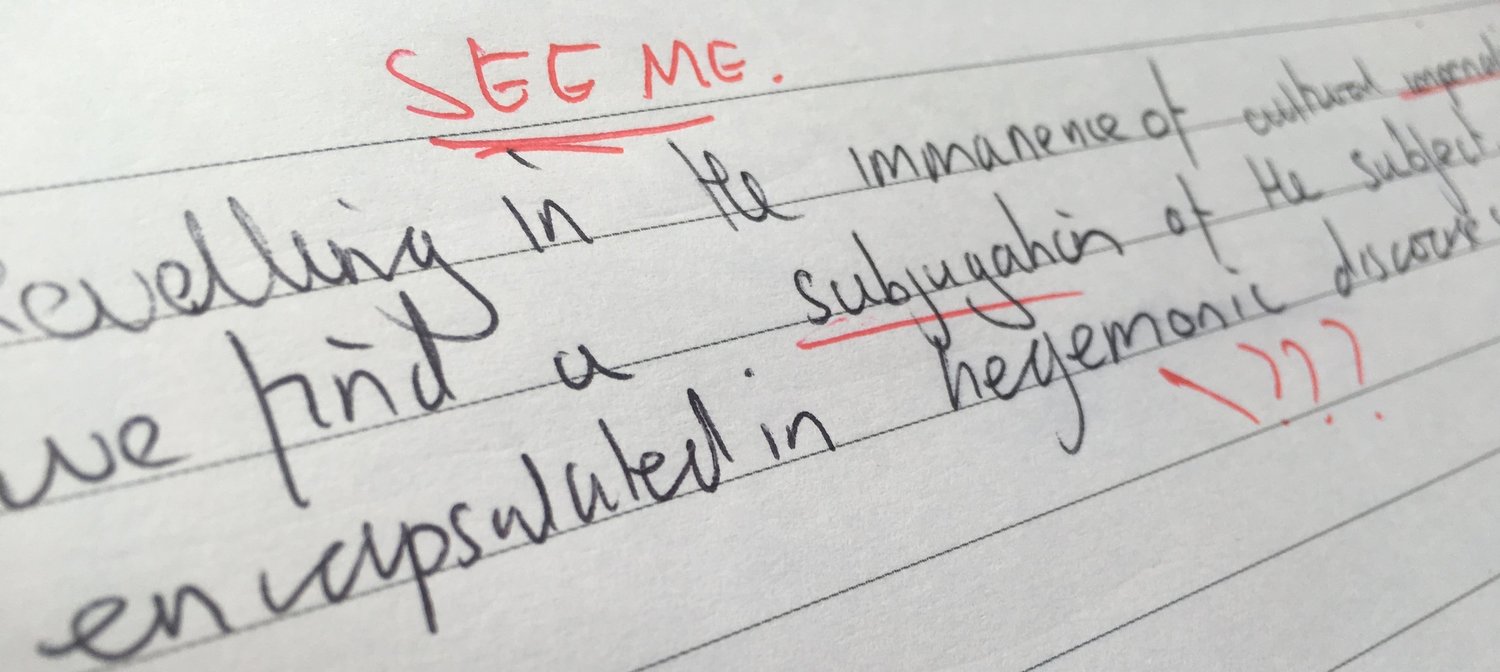 SEE ME.
Revelling in the immanence of cultural
we find a subjugation of the subject
encapsulated in hegemonic
???